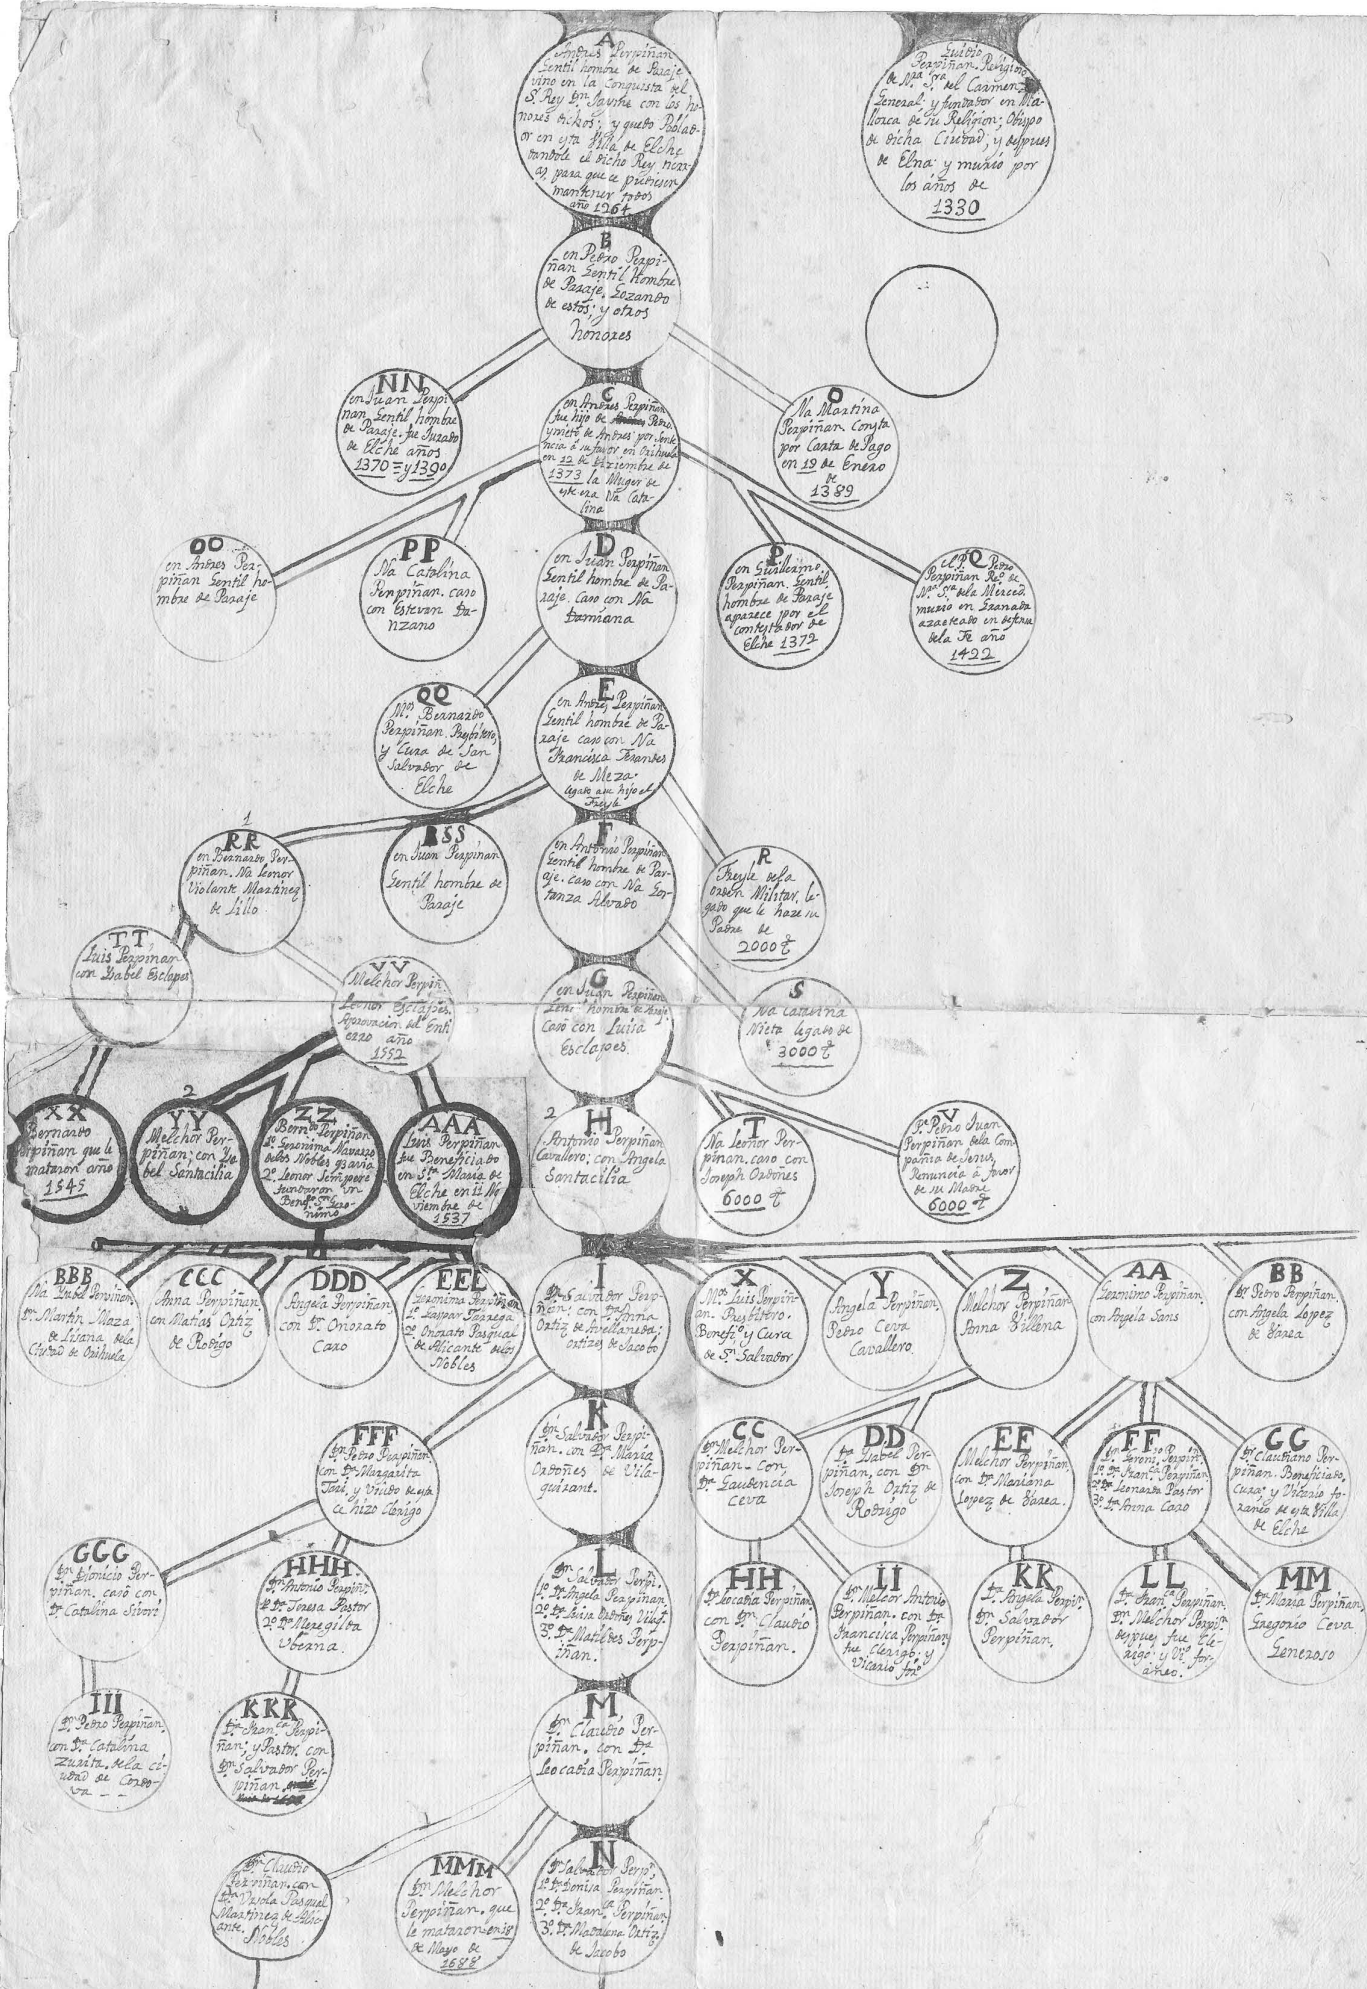 A
Andres Perpiñan
Gentil hombre de Paraje
vino en la Conquista del
Sr. Rey Dn. Jayme con los ho-
nores dichos; y quedo Poblad-
or en esta Villa de Elche
dandole el dicho Rey tierr-
as, para que se pudiesen
mantener todos
año 1264
Guidio
Perpiñan. Religioso
de Nra. Sra. del Carmen
General; y fundador en Ma-
llorca de su Religion; Obispo
de dicha Ciudad; y despues
de Elna; y murio por
los años de
1330
B
en Pedro Perpi-
ñan Gentil Hombre
de Paraje. Gozando
de estos; y otros
honores
NN
en Juan Perpi
nan Gentil hombre
de Paraje. fue Jurado
de Elche años
1370 = y 1390
C
en Andres Perpiñan
fue hijo de Pedro
y nieto de Andres por Sente
ncia á su favor en Orihuela
en 12 de Diziembre de
1373 la Muger de
este era Na Cata-
lina
O
Na Martina
Perpiñan Consta
por Carta de Pago
en 19 de Enero
de
1389
OO
en Andres Per-
piñan Gentil ho-
mbre de Paraje
PP
Na Catalina
Perpiñan. caso
con Estevan Da-
nzano
D
en Juan Perpiñan
Gentil hombre de Pa-
raje. Caso con Na
Damiana
P
en Guillermo
Perpiñan. Gentil
hombre de Paraje
aparece por el
contestador de
Elche 1372
Q
el P. Pedro
Perpiñan Reo. de
Na. Sra. de la Merced.
murio en Granada
azaeteado en defensa
de la Fe año
1422
QQ
Mos. Bernardo
Perpiñan. Presbitero,
y Cura de San
Salvador de
Elche
E
en Andres Perpiñan
Gentil hombre de Pa-
raje caso con Na
Francisca Ferandes
de Meza.
legado a su hijo el
Freyle
1
RR
en Bernardo Per-
piñan. Na Leonor
Violante Martinez
de Lillo
SS
en Juan Perpiñan
Gentil hombre de
Paraje
F
en Antonio Perpiñan
Gentil hombre de Par-
aje. caso con Na Gos-
tanza Alvado
R
Freyle de la
orden Militar. le-
gado que le haze su
Padre de
2000 ₶
TT
Luis Perpiñan
con Ysabel Esclapes
VV
Melchor Perpiñ.
Leonor Esclapes.
Aprovacion del Enti
erro año
1552
G
en Juan Perpiñan
Genti hombre de Paraje
Caso con Luisa
Esclapes
S
Na Catarina
Nieta legado de
3000 ₶
XX
Bernardo
Perpiñan que le
mataron año
1545
2
YY
Melchor Per-
piñan; con Ysa
bel Santacilia
ZZ
Berndo. Perpiñan
1º Geronima Navarro
de los Nobles
2º Leonor Sempere
fundaron un
Benefo. Sn. Gero-
nimo
AAA
Luis Perpiñan
fue Beneficiado
en Sta. Maria de
Elche en 11 No
viembre de
1537
2
H
Antonio Perpiñan
Cavallero; con Angela
Santacilia
T
Na Leonor Per-
piñan. caso con
Joseph Ordoñes
6000 ₶
V
Pe. Pedro Juan
Perpiñan de la Com-
pañia de Jesus,
Renuncia á favor
de su Madre
6000 ₶
BBB
Na Ysabel Perpiñan.
Dn. Martin Maza
de Lisana de la
Ciudad de Orihuela
CCC
Anna Perpiñan
con Matias Ortiz
de Rodrigo
DDD
Angela Perpiñan
con Dn. Onorato
Caro
EEE
Geronima Perpiñan
1º Gaspar Tarrega
2º Onorato Pasqual
de Alicante de los
Nobles
I
Dn. Salvador Perp-
iñan; con Da. Anna
Ortiz de Avellaneda;
Ortizes de Jacobo
X
Mos. Luis Perpiñ-
an. Presbitero.
Benefo. y Cura
de Sn. Salvador
Y
Angela Perpiñan.
Pedro Ceva
Cavallero.
Z
Melchor Perpiñan
Anna Villena
AA
Geronimo Perpiñan.
con Angela Sans
BB
Dn. Pedro Perpiñan.
con Angela Lopez
de Varea
FFF
Dn. Pedro Perpiñan
con Da. Margarita
Tari, y Viudo de esta
se hizo Clerigo
K
Dn. Salvador Perpi-
ñan. con Da. Maria
Ordoñes de Vila-
quirant.
CC
Dn. Melchor Per-
piñan. con
Da. Gaudencia
Ceva
DD
Da. Ysabel Per-
piñan, con Dn.
Joseph Ortiz de
Rodrigo
EE
Melchor Perpiñan.
con Da. Mariana
Lopez de Varea.
FF
Dn. Geronio. Perpin.
1º Da. Franca. Perpiñan
2º Da. Leonarda Pastor
3º Da. Anna Caro
GG
Dr. Claudiano Per-
piñan. Beneficiado,
Cura, y Vicario fo-
raneo de esta Villa
de Elche
GGG
Dn. Dionicio Per-
piñan. casó con
Da. Catalina Sivori
HHH
Dn. Antonio Perpiñn.
1º Da. Teresa Pastor
2º Da. Meregilda
Uberna.
L
Dn. Salvador Perpi.
1º Da. Angela Perpiñan
2º Da. Luisa Ordoñes
3º Da. Matildes Perp-
iñan.
HH
Da. Locaña Perpiñan
con Dn. Claudio
Perpiñan.
II
Dn. Melcor Antonio
Perpiñan. con Da.
Francisca Perpiñan
fue Clerigo; y
Vicario foro.
KK
Da. Angela Perpin.
Dn. Salvador
Perpiñan.
LL
Da. Franca. Perpiñan.
Dn. Melchor Perpin.
despues fue Cle-
rigo; y Vio. for-
aneo.
MM
Da. Maria Perpiñan
Gregorio Ceva
Generoso
III
Dn. Pedro Perpiñan.
con Da. Catalina
Zurita. de la ci-
udad de Cordo-
va - -
KKK
Da. Franca. Perpi-
ñan; y Pastor. con
Dn. Salvador Per-
piñan.
M
Dn. Claudio Per-
piñan. con Da.
Leocadia Perpiñan.
Dn. Claudio
Perpiñan. con
Da. Ursola Pasqual
Martinez de Alic-
ante.
Nobles
MMM
Dn. Melchor
Perpiñan. que
le mataron en 18
de Mayo de
1688
N
Dn. Salvador Perpn.
1º Da. Ionisa Perpiñan.
2º Da. Franca. Perpiñan.
3º Da. Madalena Ortiz
de Jacobo